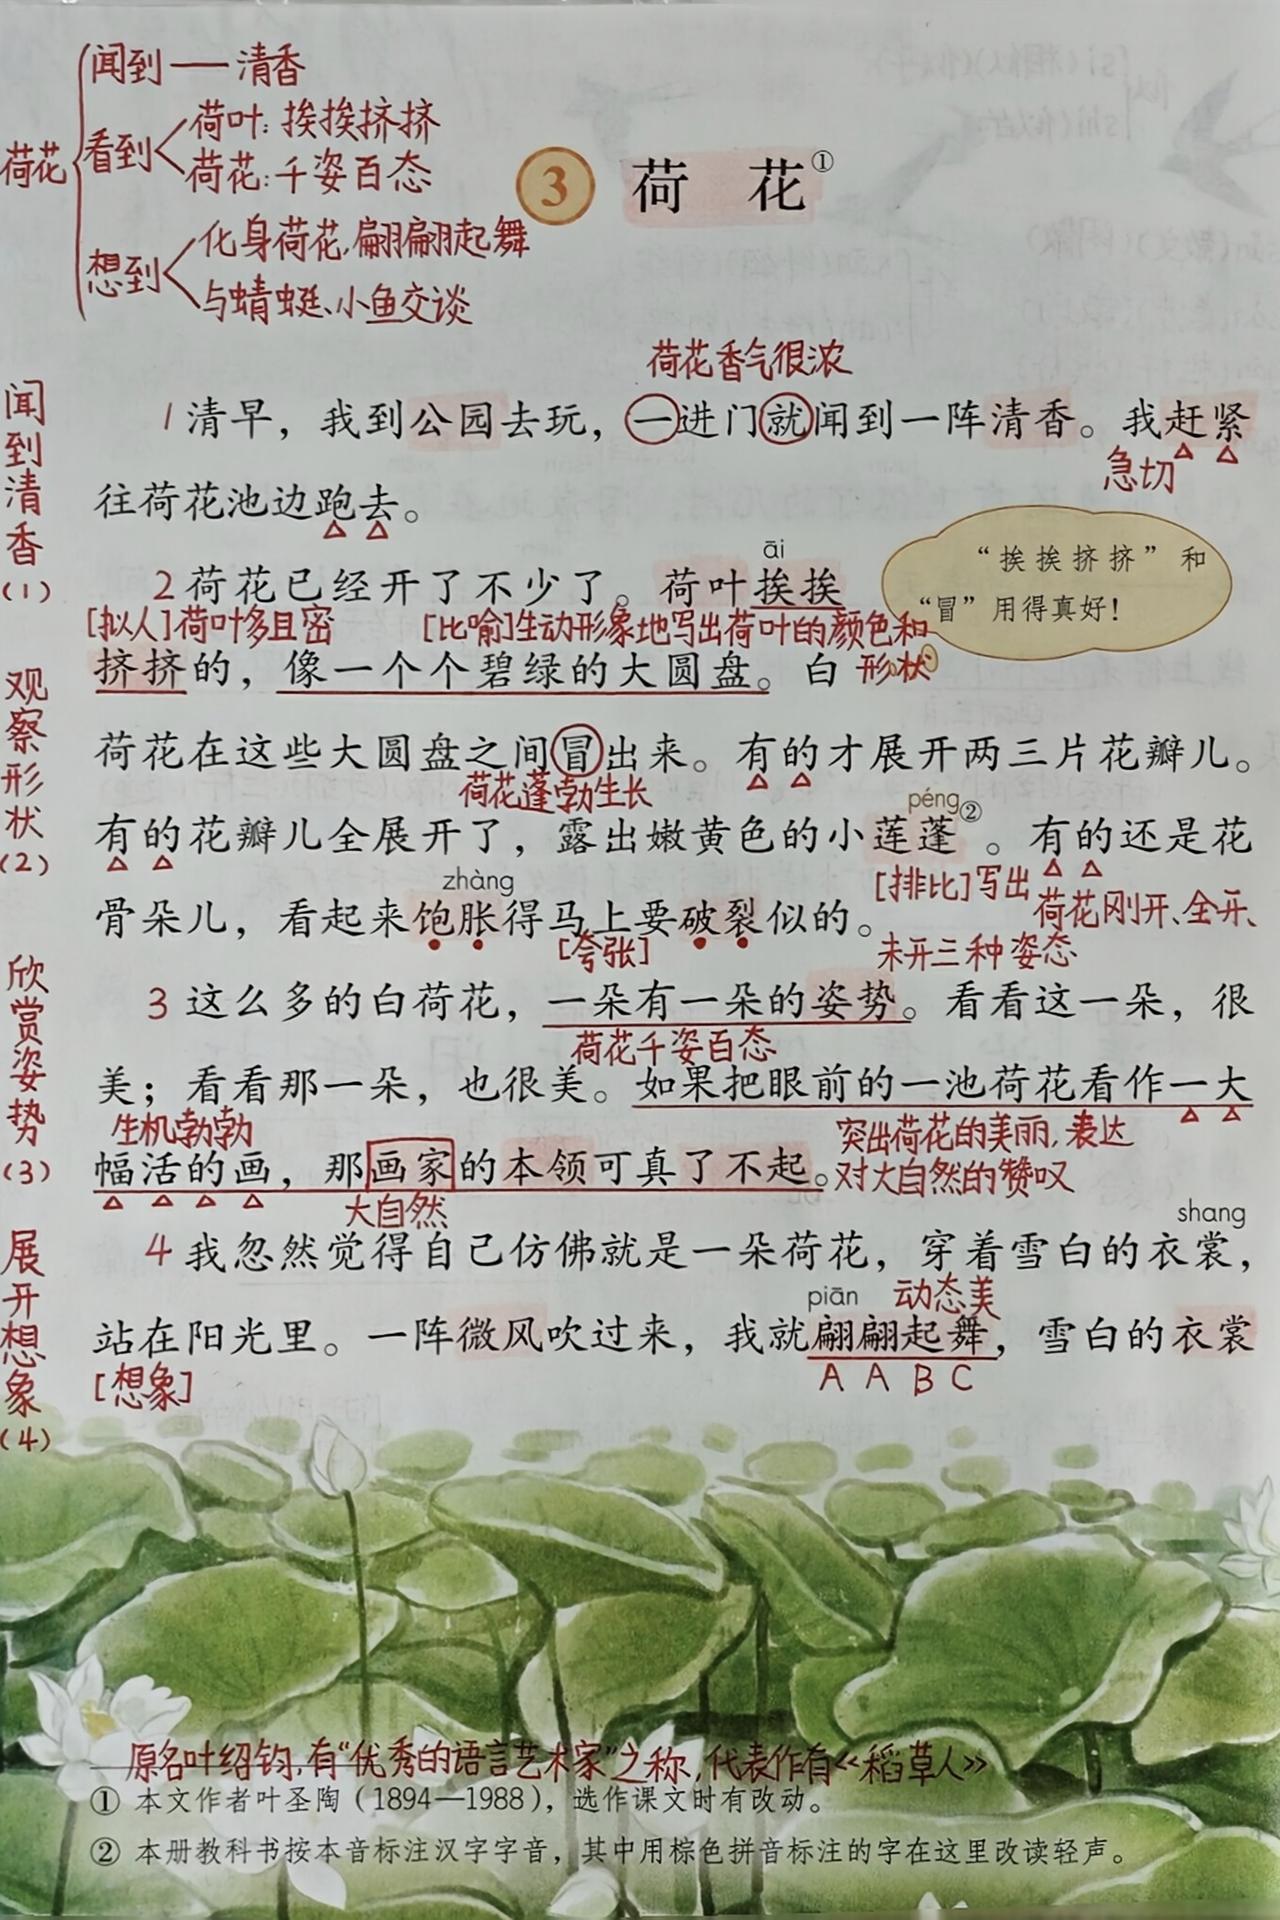 闻到——清香
荷叶：挨挨挤挤
看到
荷花：千姿百态
荷花
化身荷花,翩翩起舞
想到
与蜻蜓、小鱼交谈
3 荷 花①
荷花香气很浓
1 清早，我到公园去玩，一进门就闻到一阵清香。我赶紧
急切
往荷花池边跑去。
āi
2 荷花已经开了不少了。荷叶挨挨
“挨挨挤挤”和
“冒”用得真好！
[拟人]荷叶多且密 [比喻]生动形象地写出荷叶的颜色和
形状
挤挤的，像一个个碧绿的大圆盘。白
荷花在这些大圆盘之间冒出来。有的才展开两三片花瓣儿。
荷花蓬勃生长
péng
有的花瓣儿全展开了，露出嫩黄色的小莲蓬②。有的还是花
[排比]写出
荷花刚开、全开、
未开三种姿态
zhàng
骨朵儿，看起来饱胀得马上要破裂似的。
[夸张]
3 这么多的白荷花，一朵有一朵的姿势。看看这一朵，很
荷花千姿百态
美；看看那一朵，也很美。如果把眼前的一池荷花看作一大
生机勃勃
突出荷花的美丽,表达
对大自然的赞叹
幅活的画，那画家的本领可真了不起。
大自然
shang
4 我忽然觉得自己仿佛就是一朵荷花，穿着雪白的衣裳，
piān 动态美
站在阳光里。一阵微风吹过来，我就翩翩起舞，雪白的衣裳
[想象] A A B C
闻到清香(1)
观察形状(2)
欣赏姿势(3)
展开想象(4)
原名叶绍钧,有“优秀的语言艺术家”之称,代表作有《稻草人》
① 本文作者叶圣陶（1894—1988），选作课文时有改动。
② 本册教科书按本音标注汉字字音，其中用棕色拼音标注的字在这里改读轻声。